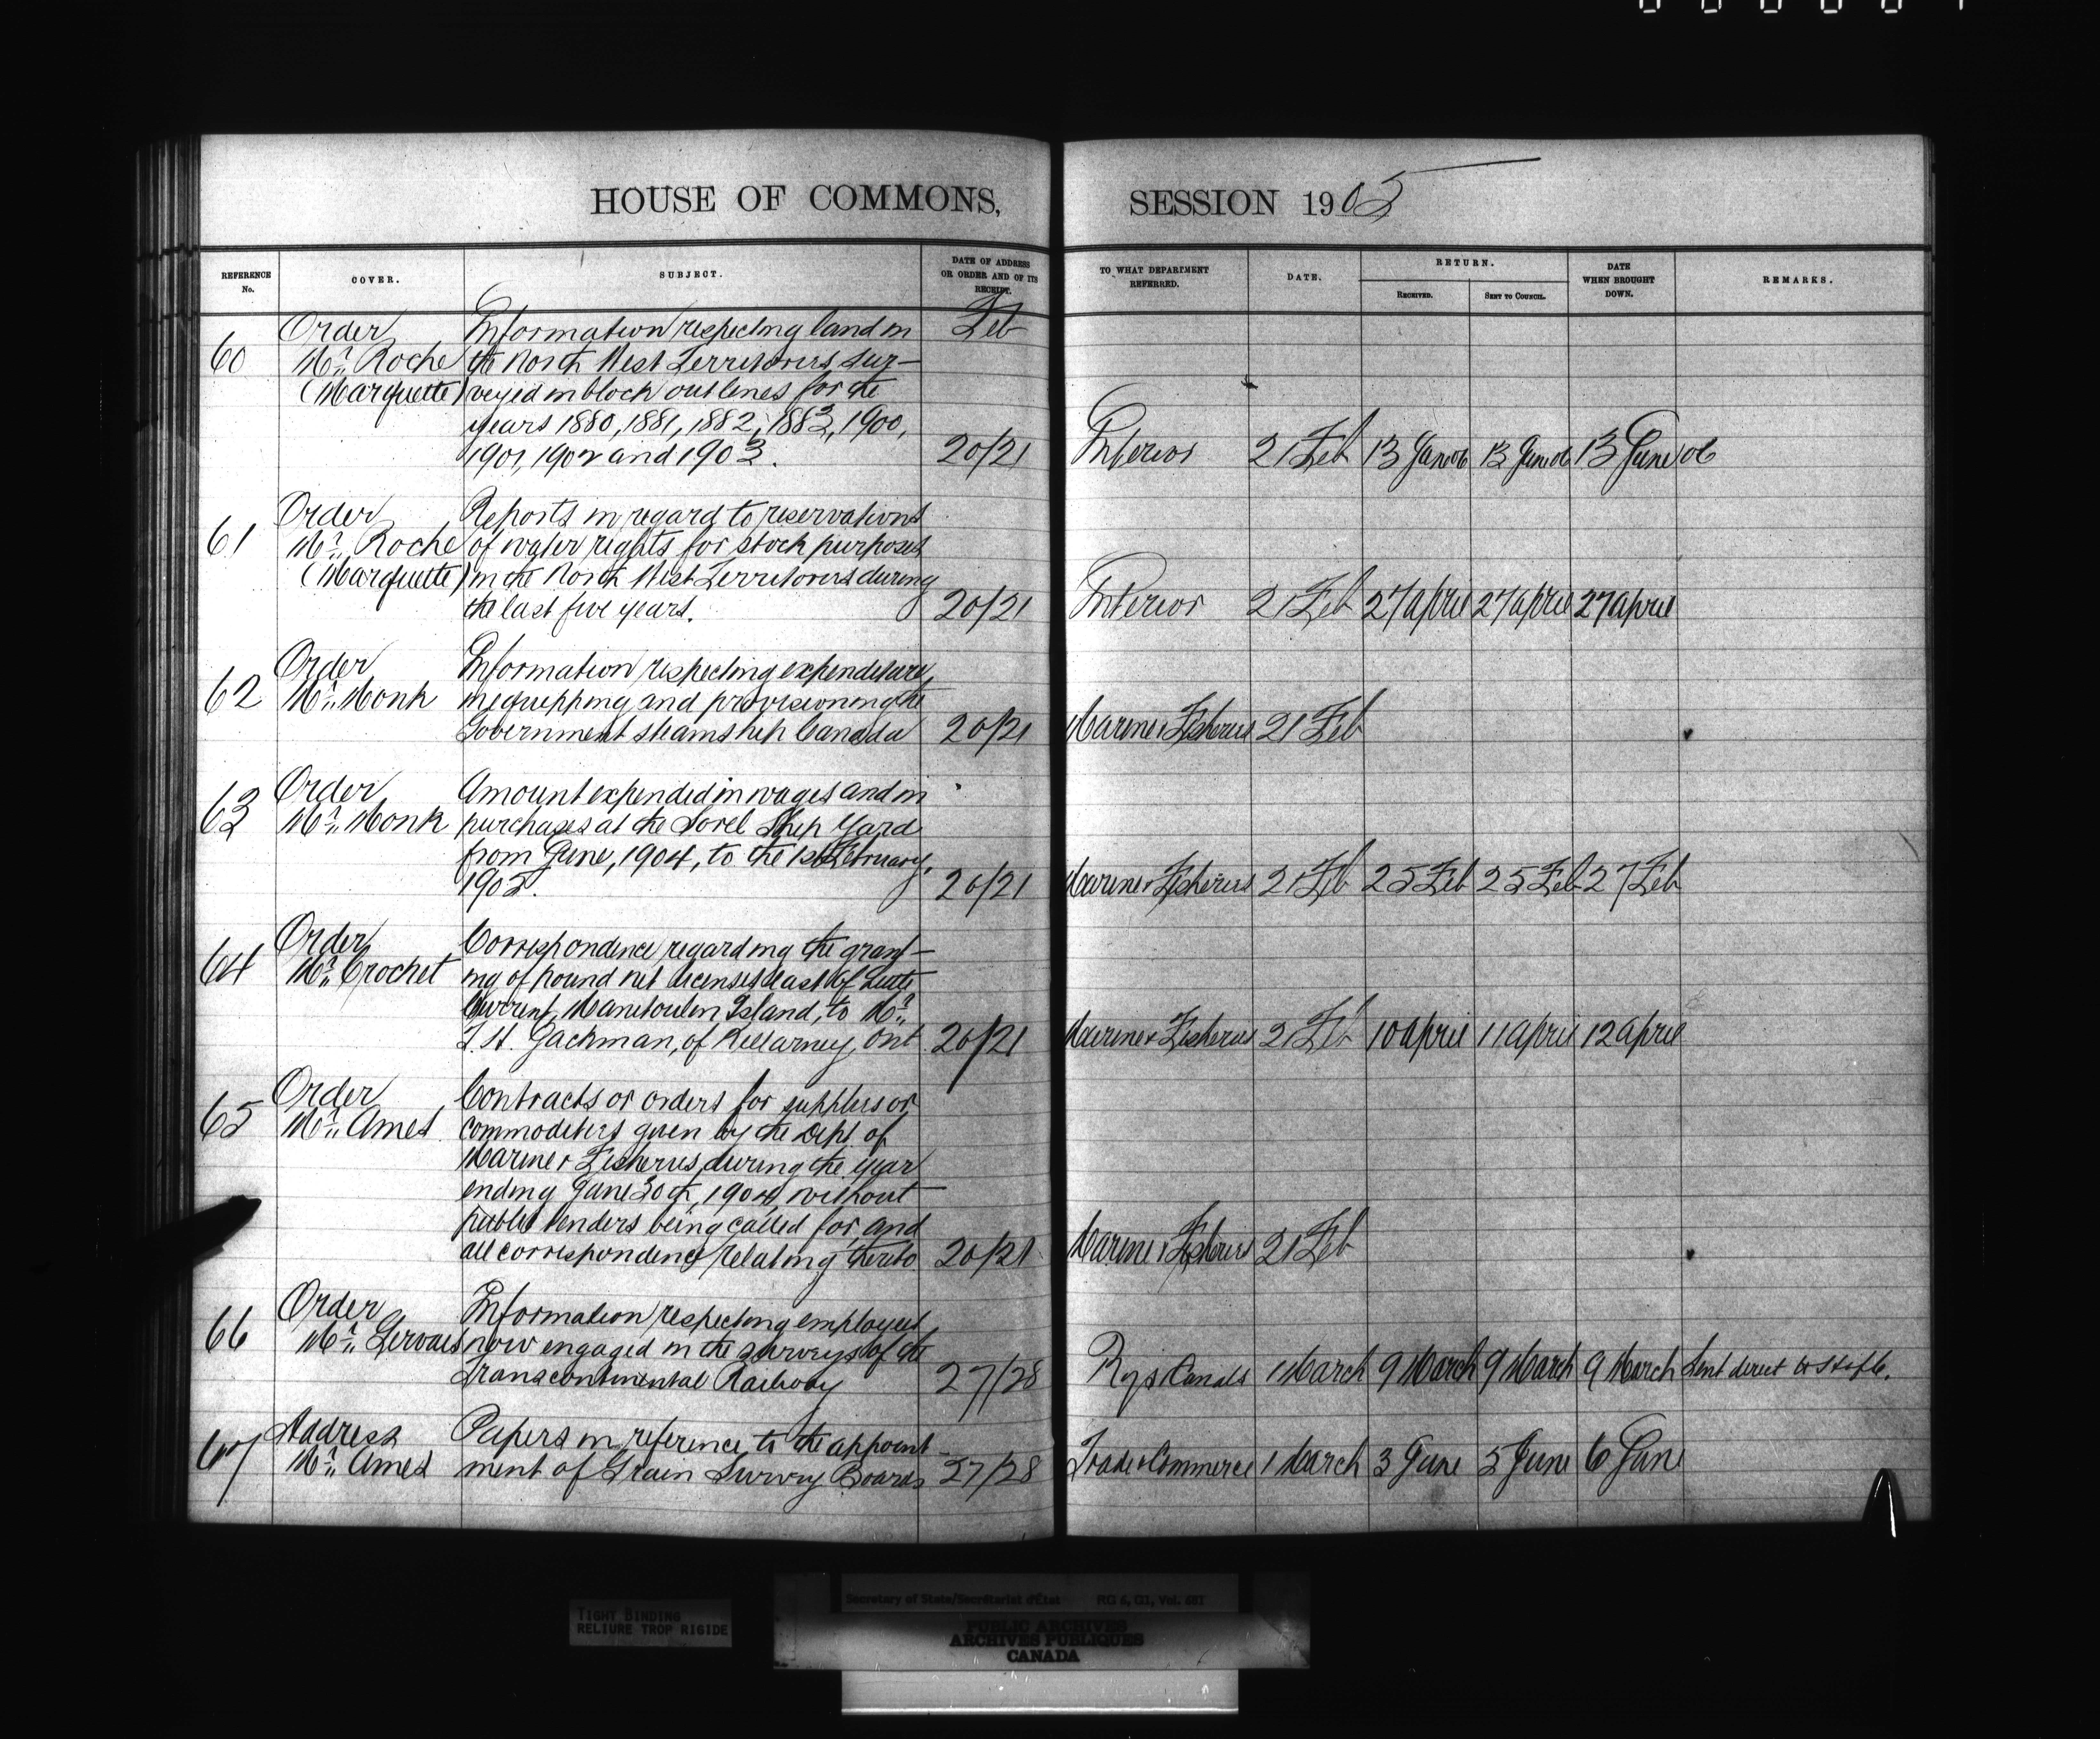 HOUSE OF COMMONS, SESSION 1905
REFERENCE No. COVER. SUBJECT. DATE OF ADDRESS OR ORDER AND OF ITS RECEIPT. TO WHAT DEPARTMENT REFERRED. DATE. RETURN. RECEIVED. SENT TO COUNCIL. DATE WHEN BROUGHT DOWN. REMARKS.
Order Information respecting land in Feb
60 Mr. Roche the North West Territories sur-
(Marquette) veyed in block outlines for the
years 1880, 1881, 1882, 1883, 1900,
1901, 1902 and 1903. 20/21 Interior 21 Feb 13 June 06 13 June 06 13 June 06
Order Reports in regard to reservations
61 Mr. Roche of water rights for stock purposes
(Marquette) in the North West Territories during
the last five years. 20/21 Interior 21 Feb 27 April 27 April 27 April
Order Information respecting expenditure
62 Mr. Monk in equipping and provisioning the
Government steamship Canada 20/21 Marine & Fisheries 21 Feb
Order Amount expended in wages and in
63 Mr. Monk purchases at the Sorel Ship Yard
from June, 1904, to the 1st February,
1905. 20/21 Marine & Fisheries 21 Feb 25 Feb 25 Feb 27 Feb
Order Correspondence regarding the grant-
64 Mr. Crochet ing of pound net licenses east of Little
Current, Manitoulin Island, to Mr.
Jackman, of Killarney, Ont. 20/21 Marine & Fisheries 21 Feb 10 April 11 April 12 April
Order Contracts or orders for supplies or
65 Mr. Ames commodities given by the Dept. of
Marine & Fisheries, during the year
ending June 30th, 1904, without
public tenders being called for, and
all correspondence relating thereto 20/21 Marine & Fisheries 21 Feb
Order Information respecting employees
66 Mr. Gervais now engaged in the surveys of the
Transcontinental Railway 27/28 Rys & Canals 1 March 9 March 9 March 9 March Sent direct to
Address Papers in reference to the appoint-
67 Mr. Ames ment of Grain Survey Boards 27/28 Trade & Commerce 1 March 3 June 5 June 6 June
TIGHT BINDING
RELIURE TROP RIGIDE
Secretary of State/Secrétariat d'État RG 6, G1, Vol.
PUBLIC ARCHIVES
ARCHIVES PUBLIQUES
CANADA